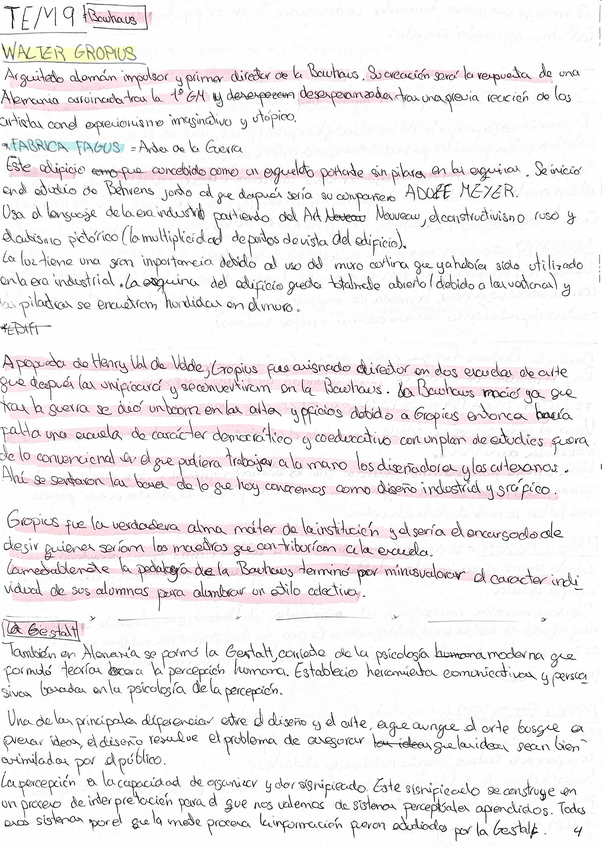 TEM 9 Bauhaus
WALTER GROPIUS
Arquitecto alemán impulsor y primer director de la Bauhaus. Su creación será la respuesta de una
Alemania arruinada tras la 1º GM y desesperanzada tras una previa reacción de los
artistas con el expresionismo imaginativo y utópico.
*FABRICA FAGUS = Antes de la Guerra
Este edificio fue concebido como un esqueleto portante sin pilares en las esquinas. Se inició
en el estudio de Behrens junto al que después sería su compañero ADOLF MEYER.
Usa el lenguaje de la era industrial partiendo del Art Nouveau, el constructivismo ruso y
el cubismo pictórico (la multiplicidad de puntos de vista del edificio).
La luz tiene una gran importancia debido al uso del muro cortina que ya había sido utilizado
en la era industrial. La esquina del edificio queda totalmente abierta (debido a las ventanas) y
las pilastras se encuentran hundidas en el muro.
*EDIFI
A propuesta de Henry Val de Velde, Gropius fue asignado director en dos escuelas de arte
que después las unificará y se convertirán en la Bauhaus. La Bauhaus nació ya que
tras la guerra se dió un boom en las artes y oficios debido a Gropius entonces hacía
falta una escuela de carácter democrático y coeducativo con un plan de estudios fuera
de lo convencional en el que pudieran trabajar a la mano los diseñadores y los artesanos.
Ahí se sentaron las bases de lo que hoy conocemos como diseño industrial y gráfico.
Gropius fue la verdadera alma máter de la institución y el sería el encargado de
elegir quienes serían los maestros que contribuirían a la escuela.
Lamentablemente la pedagogía de la Bauhaus terminó por minusvalorar el caracter indi-
vidual de sus alumnos para alumbrar un estilo colectivo.
La Gestalt
También en Alemania se formó la Gestalt, corriente de la psicología humana moderna que
formuló teorías acerca la percepción humana. Estableció herramientas comunicativas y persua
sivas basadas en la psicología de la percepción.
Una de las principales diferencias entre el diseño y el arte, es que aunque el arte busque ex
presar ideas, el diseño resuelve el problema de asegurar las ideas que las ideas sean bien
asimiladas por el público.
La percepción es la capacidad de organizar y dar significado. Este significado se construye en
un proceso de interpretación para el que nos valemos de sistemas perceptuales aprendidos. Todos
esos sistemas por el que la mente procesa la información fueron estudiados por la Gestalt. 4